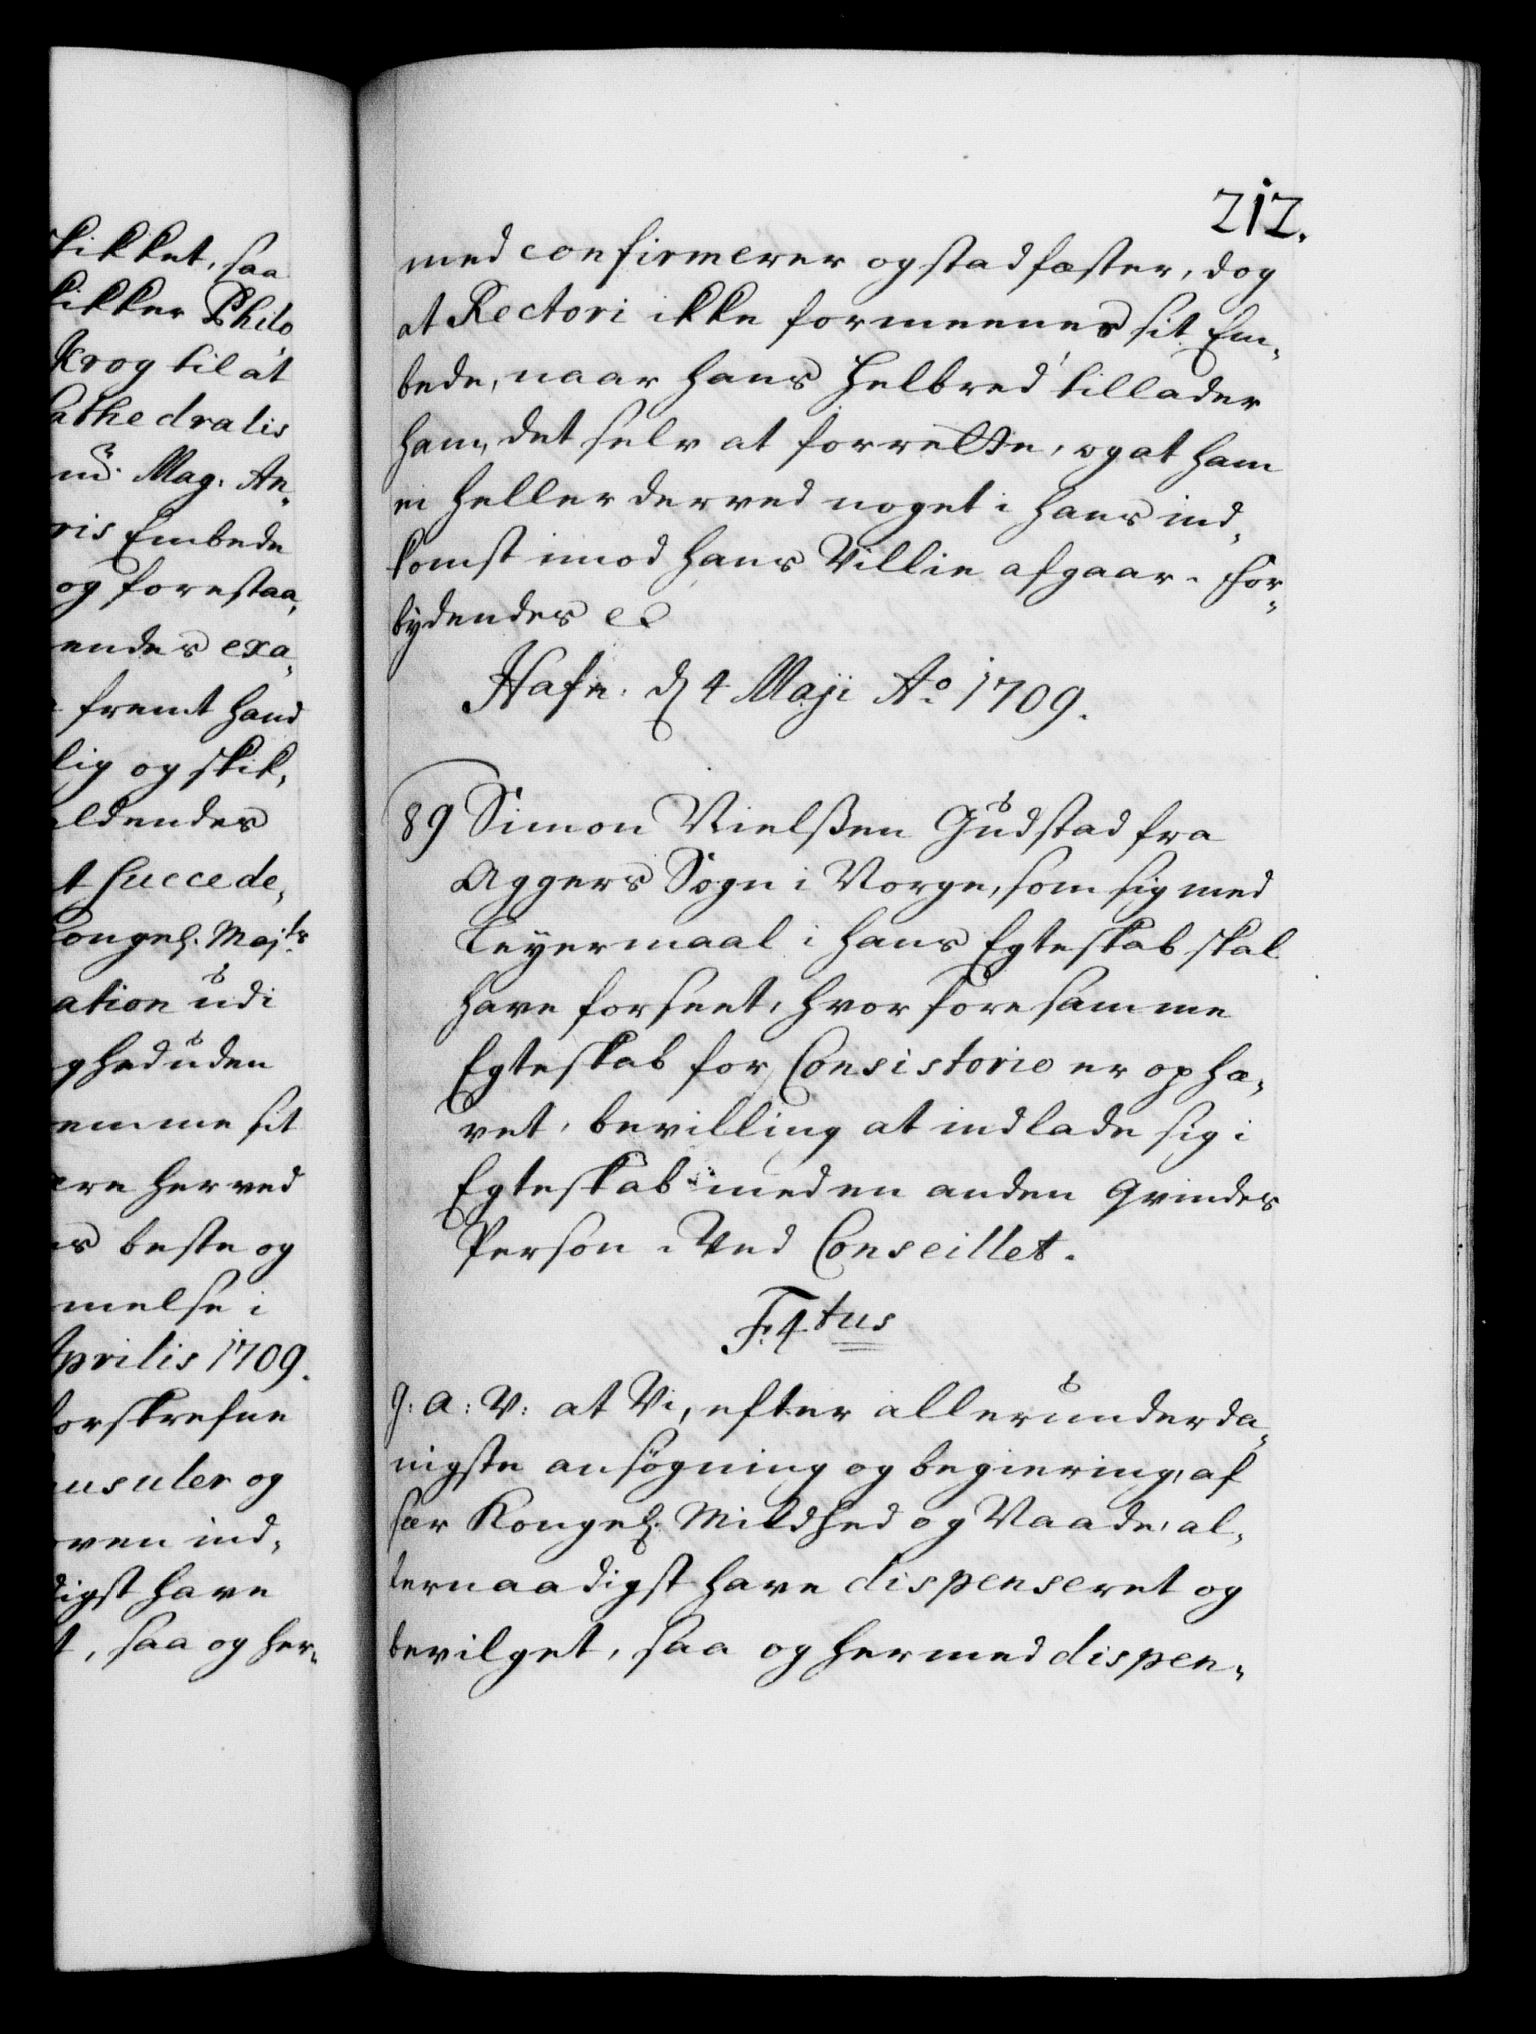 skikket, saa
kikker Philo,
Krog til at
athedralis
Mag: An,
ris Embede
og forestaa,
endes exa,
fremt hand
lig og skik,
ldendes
t succede,
Kongel. Majts
ation udi
ghed uden
emme sit
ere herved
es beste og
melse i
Aprilis 1709.
forskrefne
usuler og
oven ind,
digst have
t, saa og her,
212.
med confirmerer og stadfæster, dog
at Rectori ikke formeenes sit Em,
bede, naar hans Helbred tillader
ham, det selv at forrette, og at ham
ei heller derved noget i hans ind,
komst imod hans Villie afgaar. For,
bydendes etc
Hafn. d 4 Maji Ao 1709.
89 Simon Nielßen Gudstad fra
Aggers Sogn i Norge, som sig med
Leyermaal i hans Egteskab skal
have forseet, hvorfore samme
Egteskab for Consistorio er ophæ,
vet, bevilling at indlade sig i
Egteskab med en anden Qvindes
Person. Ved Conseillet.
F. 4tus
G: A: V: at Vi, efter allerunderda,
nigste ansøgning og begiering, af
sær Kongel. Mildhed og Naade, al,
lernaadigst have dispenseret og
bevilget, saa og hermed dispen,